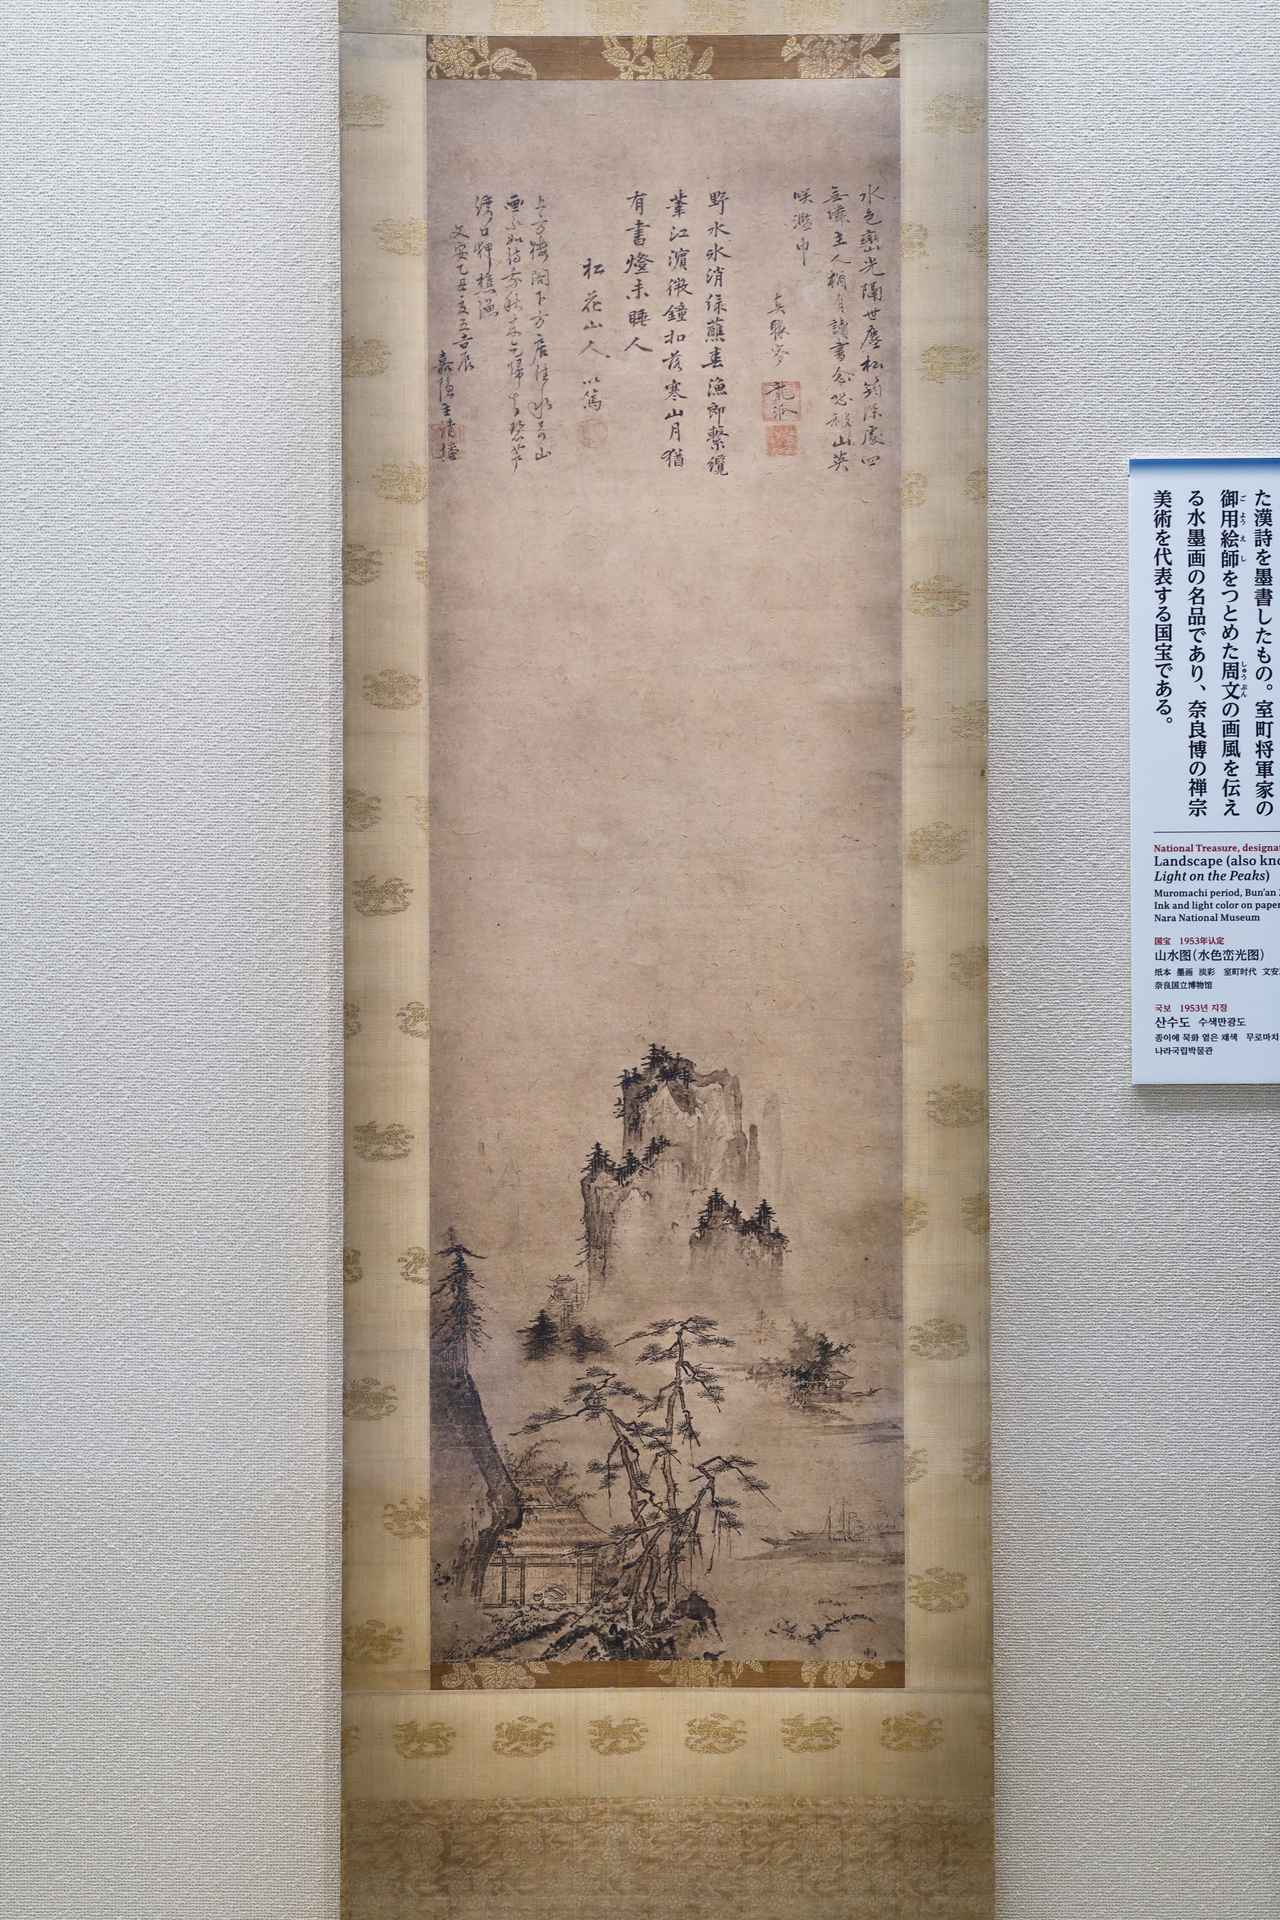 水色巒光隔世塵松筠深處四
無隣主人 自讀書 恐被山英
咲濫巾
龍派
野水氷消緑蘸春漁郎繋纜
葦江濱微鐘扣落寒山月猶
有書燈未睡人
松花山人 以篤
上方樓閣下方居 水 山
画不如詩 秋来 歸 碧芦
口 樵漁
文安乙丑夏五吉辰
主清播
た漢詩を墨書したもの。室町将軍家の
御用絵師をつとめた周文の画風を伝え
る水墨画の名品であり、奈良博の禅宗
美術を代表する国宝である。
National Treasure, designa
Landscape (also kno
Light on the Peaks)
Muromachi period, Bun'an
Ink and light color on paper
Nara National Museum
国宝 1953年认定
山水图(水色峦光图)
纸本 墨画 淡彩 室町时代 文安
奈良国立博物馆
국보 1953년 지정
산수도 수색만광도
종이에 묵화 엷은 채색 무로마치
나라국립박물관